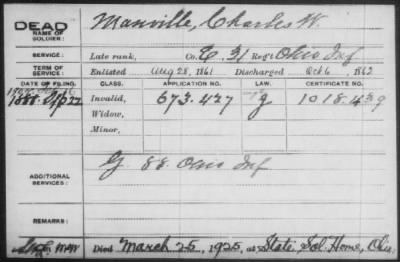 DEAD Manville, Charles W.
NAME OF SOLDIER:
SERVICE: Late rank, Co. E. 31 Reg't Ohio Inf
TERM OF SERVICE: Enlisted Aug 28, 1861 Discharged Oct 6, 1862
DATE OF FILING. CLASS. APPLICATION NO. LAW. CERTIFICATE NO.
1888. Invalid, 673.427 g 1018.439
Widow,
Minor,
ADDITIONAL SERVICES: G. 88 Ohio Inf
REMARKS:
Died March 25, 1925, at State Sol. Home, Ohio